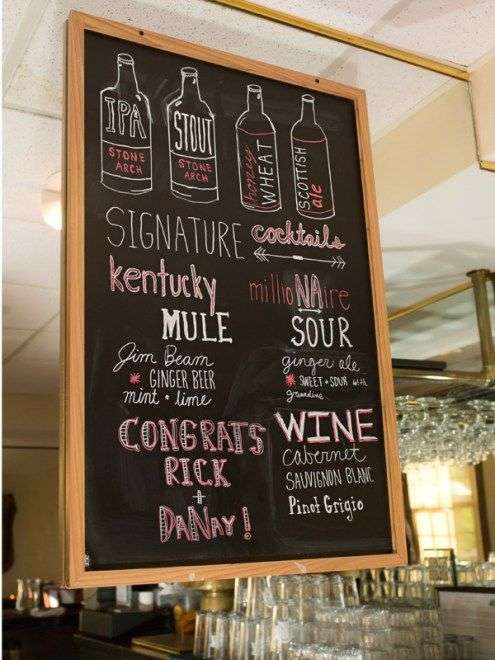 IPA
STONE
ARCH
STOUT
STONE
ARCH
honey
WHEAT
SCOTTISH
ale
SIGNATURE cocktails
kentucky
MULE
Jim Beam
* GINGER BEER
mint + lime
millioNAire
SOUR
ginger ale
* SWEET + SOUR with
grenadine
CONGRATS
RICK
+
DaNay!
WINE
cabernet
SAUVIGNON BLANC
Pinot Grigio